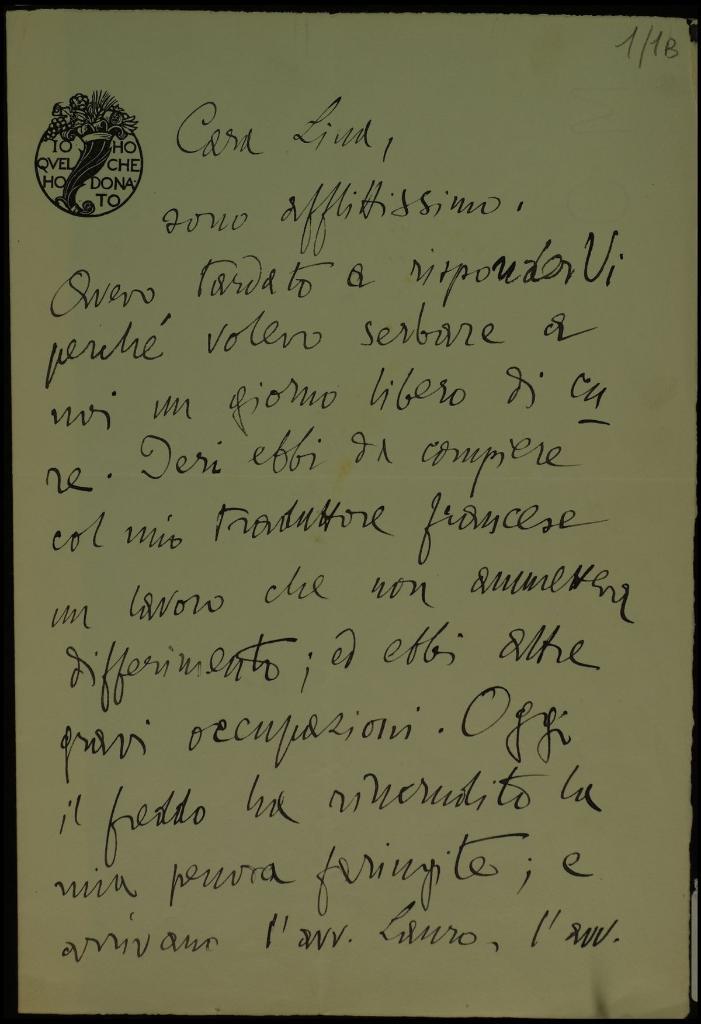 1/1B
IO HO
QVEL CHE
HO DONA
TO
Cara Lina,
sono afflittissimo.
Avevo tardato a risponderVi
perché volevo serbare a
noi un giorno libero di cu
re. Ieri ebbi da compiere
col mio traduttore francese
un lavoro che non ammetteva
differimento; ed ebbi altre
gravi occupazioni. Oggi
il freddo ha rincrudito la
mia penosa faringite; e
arrivano l'avv. Lauro, l'avv.